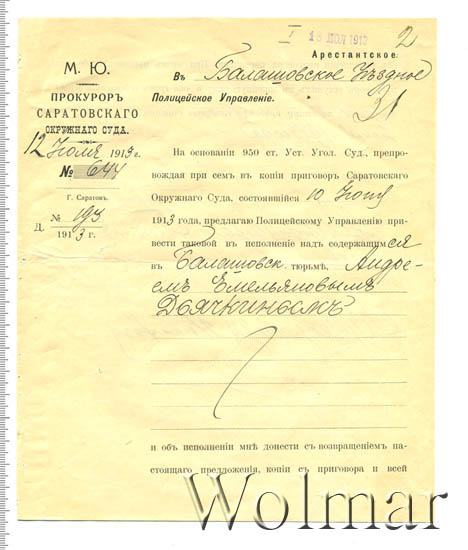 I
18 ИЮЛ 1913
2
Арестантское.
М. Ю.
ПРОКУРОРЪ
САРАТОВСКАГО
ОКРУЖНАГО СУДА.
12 Іюля 1913 г.
№ 644
Г. Саратовъ.
Д. № 193
1913 г.
Въ Балашовское Уѣздное
Полицейское Управленіе.
31
На основаніи 950 ст. Уст. Угол. Суд., препро-
вождая при семъ въ копіи приговоръ Саратовскаго
Окружнаго Суда, состоявшійся 10 Іюня
1913 года, предлагаю Полицейскому Управленію при-
вести таковой въ исполненіе надъ содержащимся
въ Балашовск. тюрьмѣ, Андре-
емъ Емельяновымъ
Дьячкинымъ
и объ исполненіи мнѣ донести съ возвращеніемъ на-
стоящаго предложенія, копіи съ приговора и всей
Wolmar